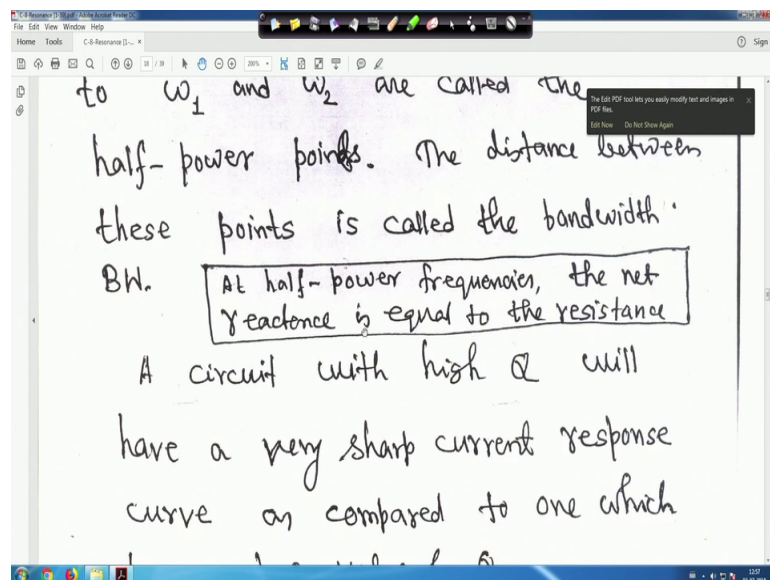 C-8-Resonance [1-39].pdf - Adobe Acrobat Reader DC
File Edit View Window Help
Home Tools C-8-Resonance [1-... × Sign
18 / 39 200%
to ω1 and ω2 are called the
The Edit PDF tool lets you easily modify text and images in PDF files.
Edit Now Do Not Show Again
half-power points. The distance between
these points is called the bandwidth
BW. At half-power frequencies, the net
reactence is equal to the resistance
A circuit with high Q will
have a very sharp current response
curve as compared to one which
12:57